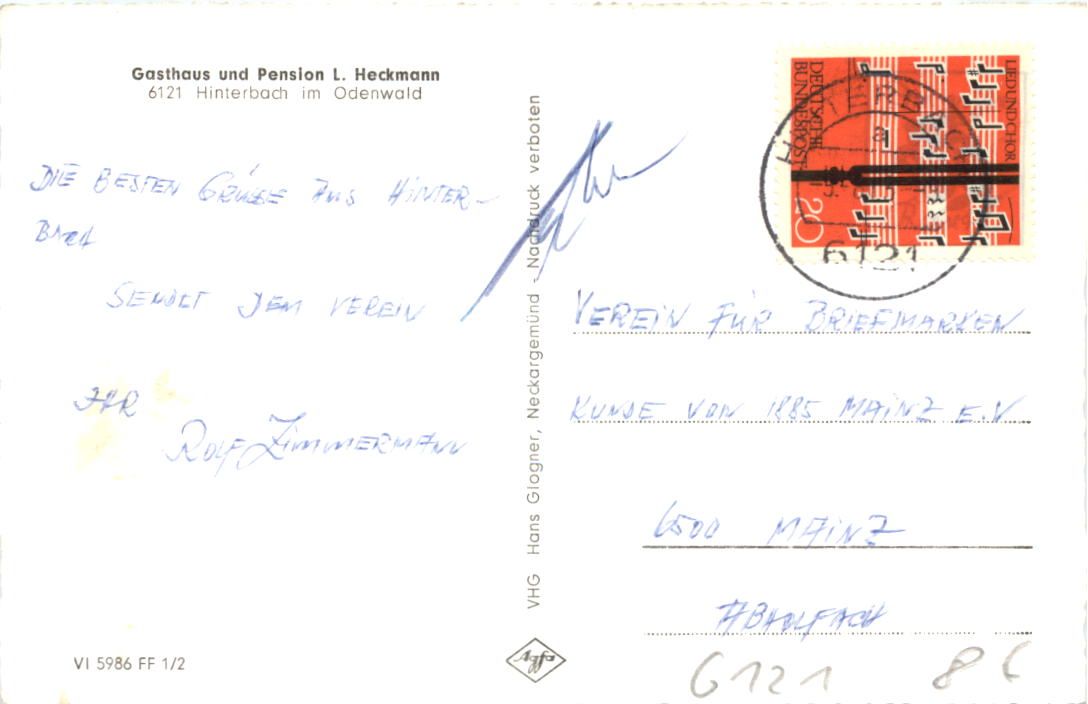 Gasthaus und Pension L. Heckmann
6121 Hinterbach im Odenwald
DIE BESTEN GRÜSSE AUS HINTER-
BACH
SENDET DEM VEREIN
IHR
ROLF ZIMMERMANN
VHG Hans Glogner, Neckargemünd - Nachdruck verboten
LIED UND CHOR
DEUTSCHE
BUNDESPOST
20
HINTERBACH
a
6121
VEREIN FÜR BRIEFMARKEN
KUNDE VON 1885 MAINZ E.V
6500 MAINZ
VI 5986 FF 1/2
Agfa
6121 8 €